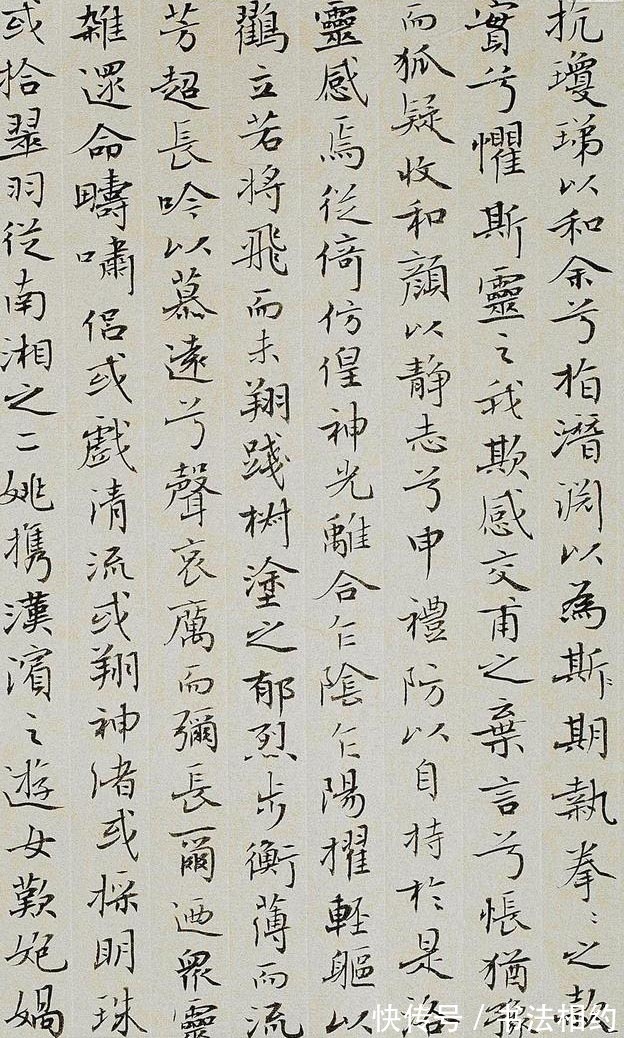 抗瓊珶以和余兮指潛渊以為斯期執拳々之款
實兮懼斯靈之我欺感交甫之棄言兮悵猶豫
而狐疑收和顔以静志兮申禮防以自持於是洛
靈感焉徙倚仿偟神光離合乍陰乍陽擢軽軀以
鸛立若将飛而未翔踐椒塗之郁烈步衡薄而流
芳超長吟以慕遠兮聲哀厲而彌長爾迺眾靈
雜遝命疇嘯侣或戲清流或翔神渚或採明珠
或拾翠羽從南湘之二姚攜漢濱之遊女歎匏媧
快传号 / 书法相约